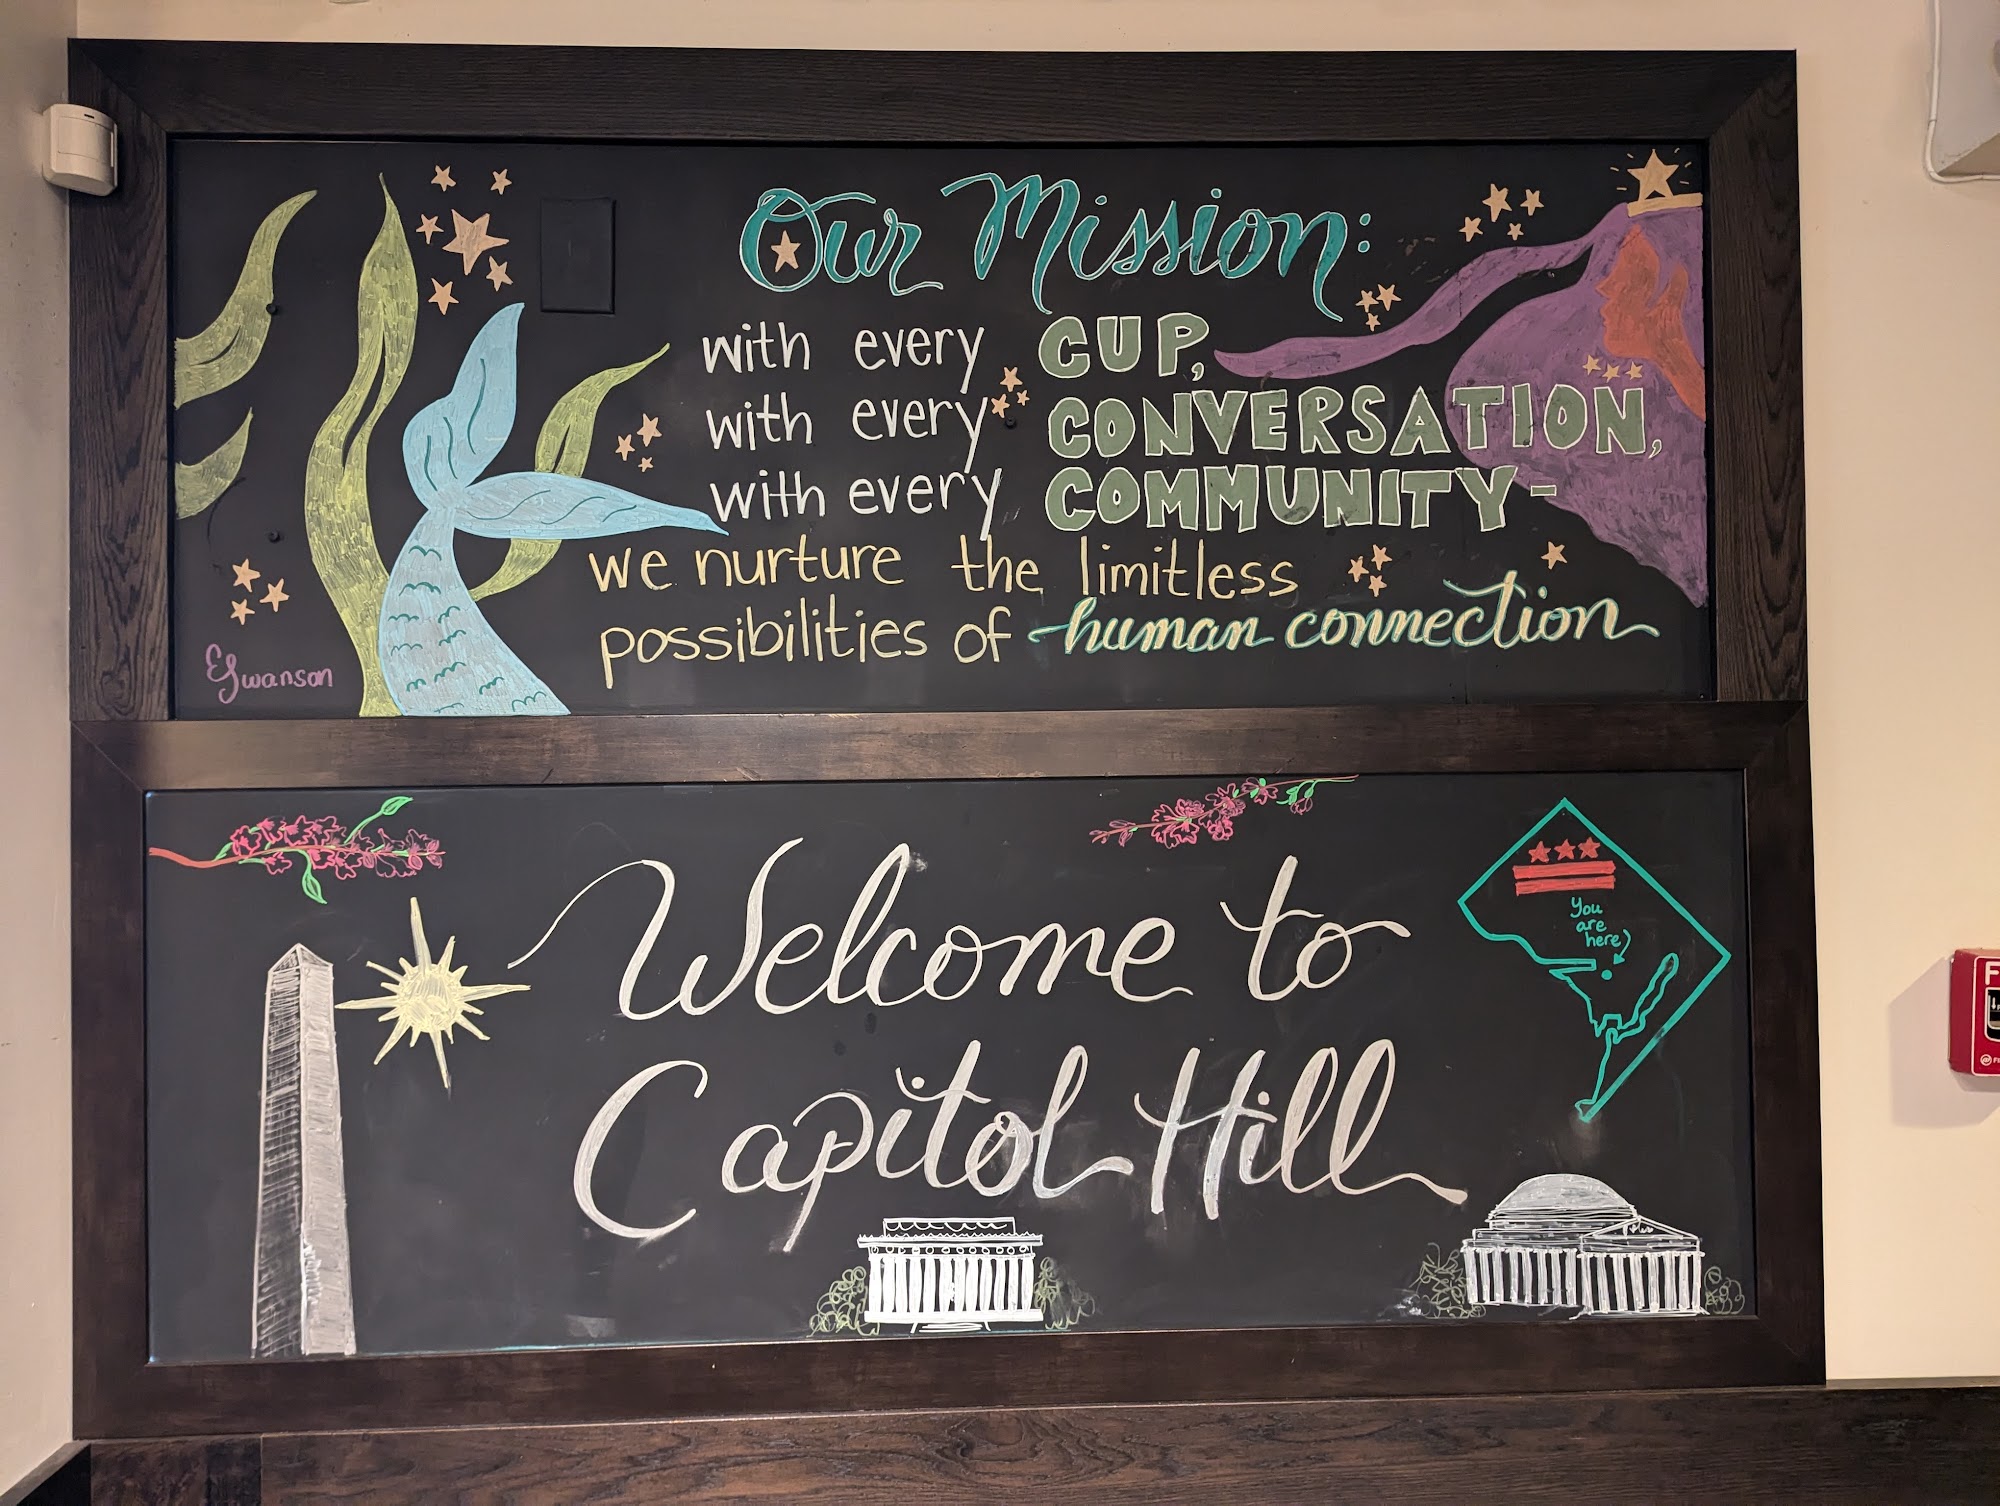 Our Mission:
with every CUP,
with every CONVERSATION,
with every COMMUNITY-
we nurture the limitless
possibilities of human connection
ESwanson
Welcome to
Capitol Hill
You
are
here
F